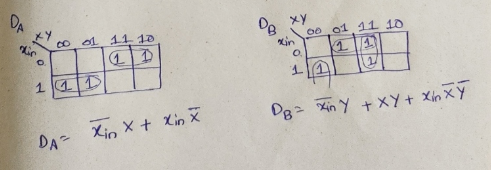 D_A XY 00 01 11 10
x_in
0 1 1
1 1 1
D_A = x̅_in X + x_in X̅
D_B XY 00 01 11 10
x_in
0 1 1
1 1 1
D_B = x̅_in Y + XY + x_in X̅Y̅